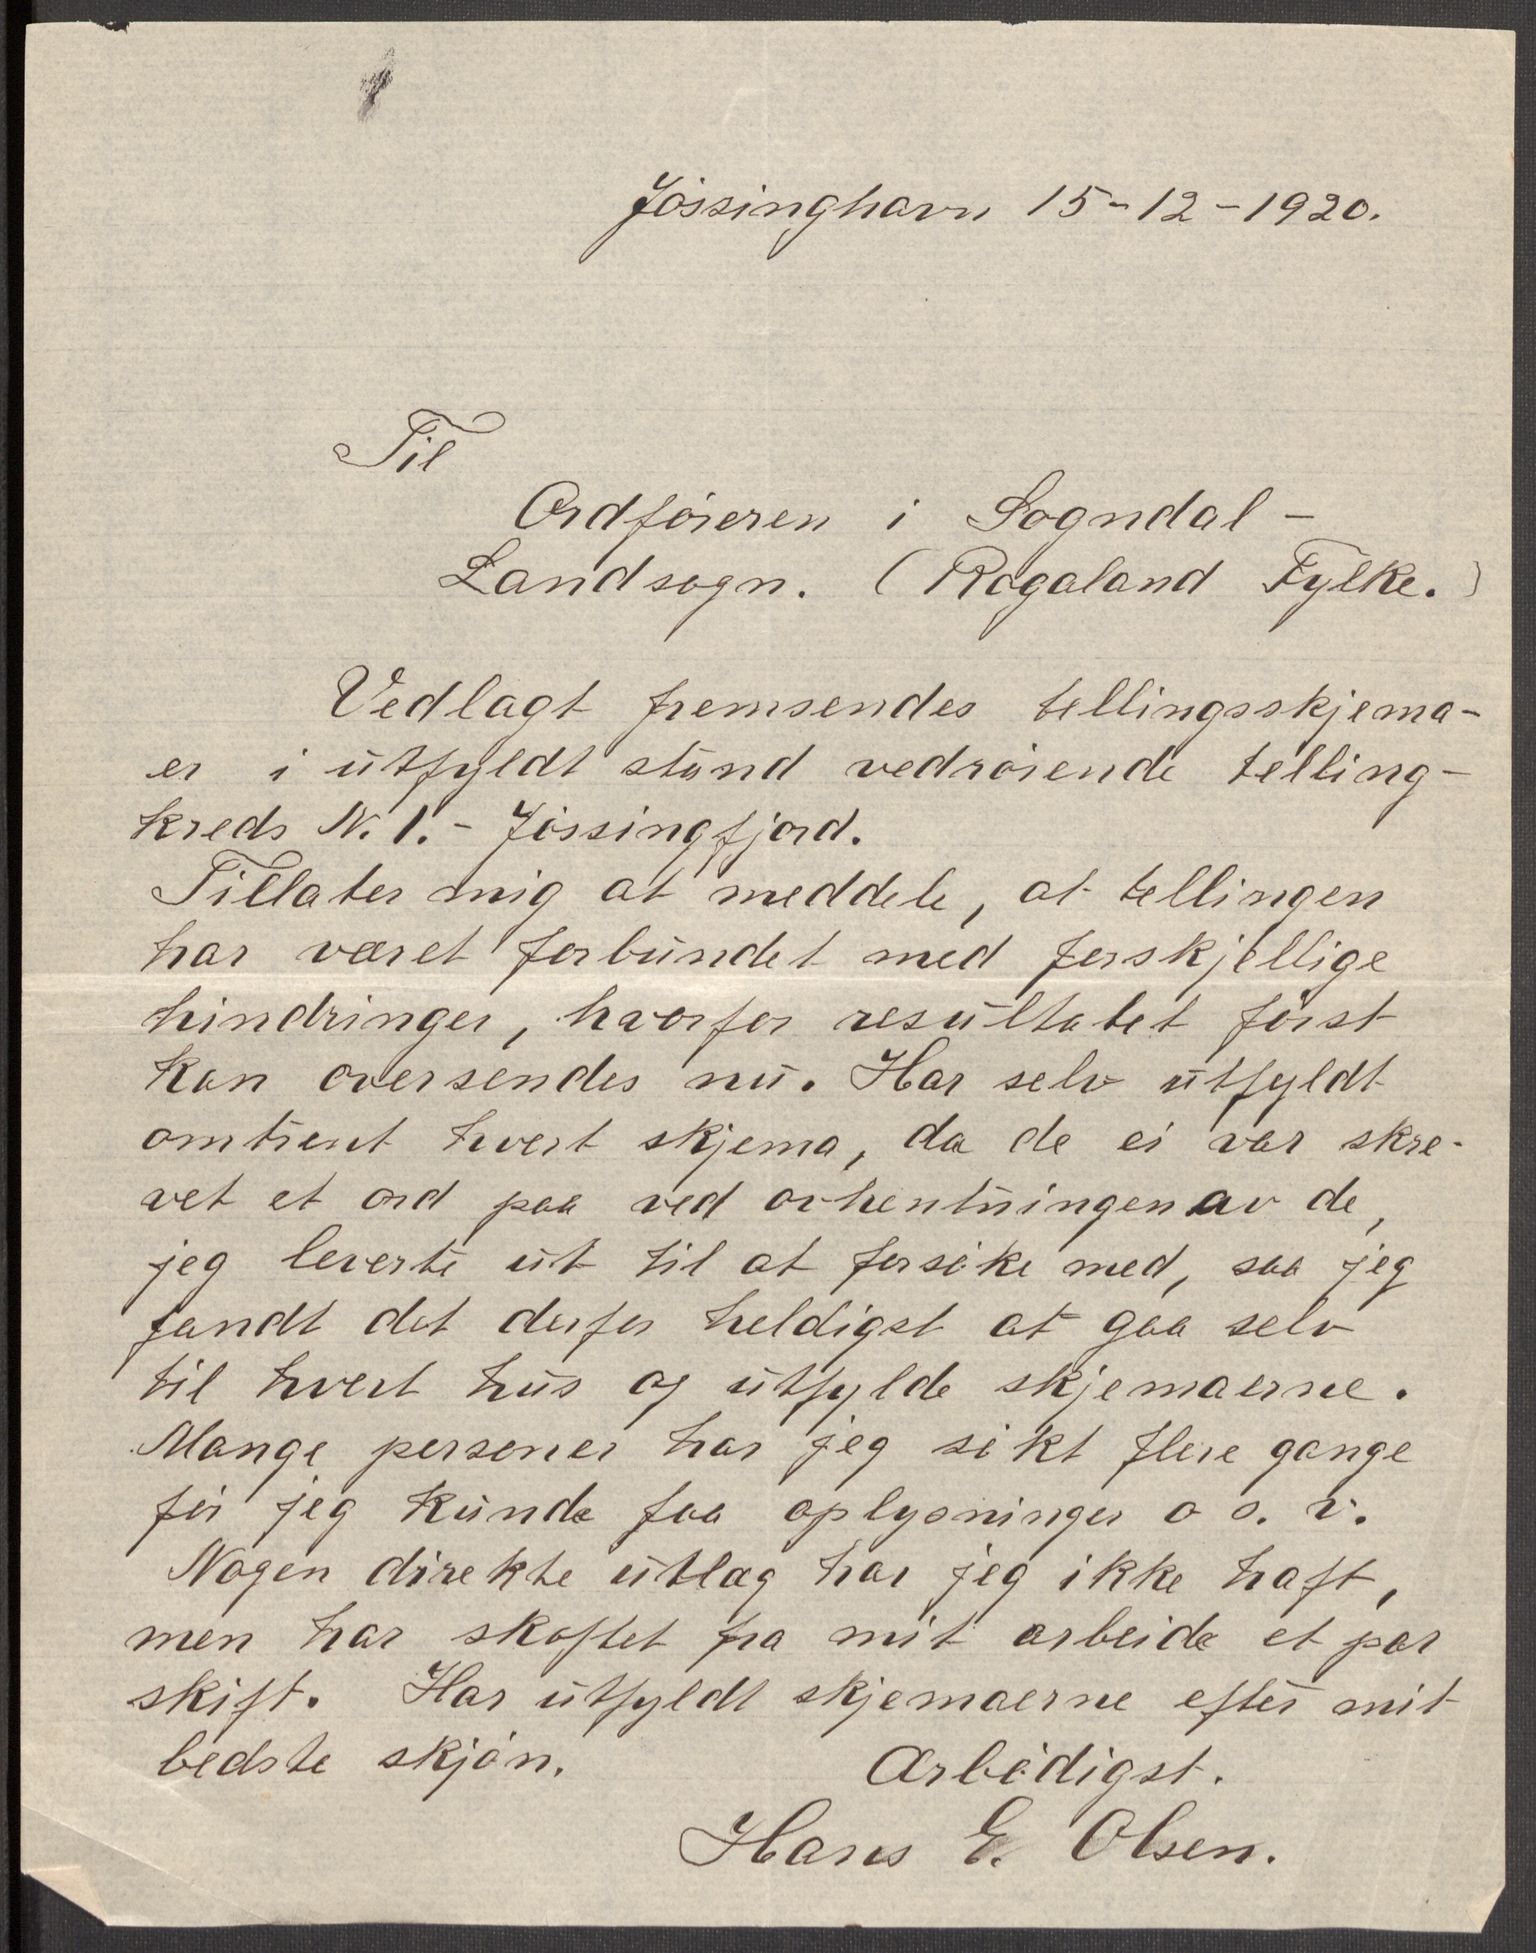 Jössinghavn 15-12-1920.
Til
Ordföreren i Sogndal -
Landsogn. (Rogaland Fylke.)
Vedlagt fremsendes tellingsskjema-
er i utfyldt stand vedrörende telling-
kreds N. 1. - Jössingfjord.
Tillater mig at meddele, at tellingen
har været forbundet med forskjellige
hindringer, hvorfor resultatet först
kan oversendes nu. Har selv utfyldt
omtrent hvert skjema, da de ei var skre-
vet et ord paa ved avhentningen av de,
jeg leverte ut til at forsöke med, saa jeg
fandt det derfor heldigst at gaa selv
til hvert hus og utfylde skjemaerne.
Mange personer har jeg sökt flere gange
för jeg kunde faa oplysninger o s. v.
Nogen direkte utlæg har jeg ikke haft,
men har skoftet fra mit arbeide et par
skift. Har utfyldt skjemaerne efter mit
bedste skjön.
Ærbödigst.
Hans E. Olsen.